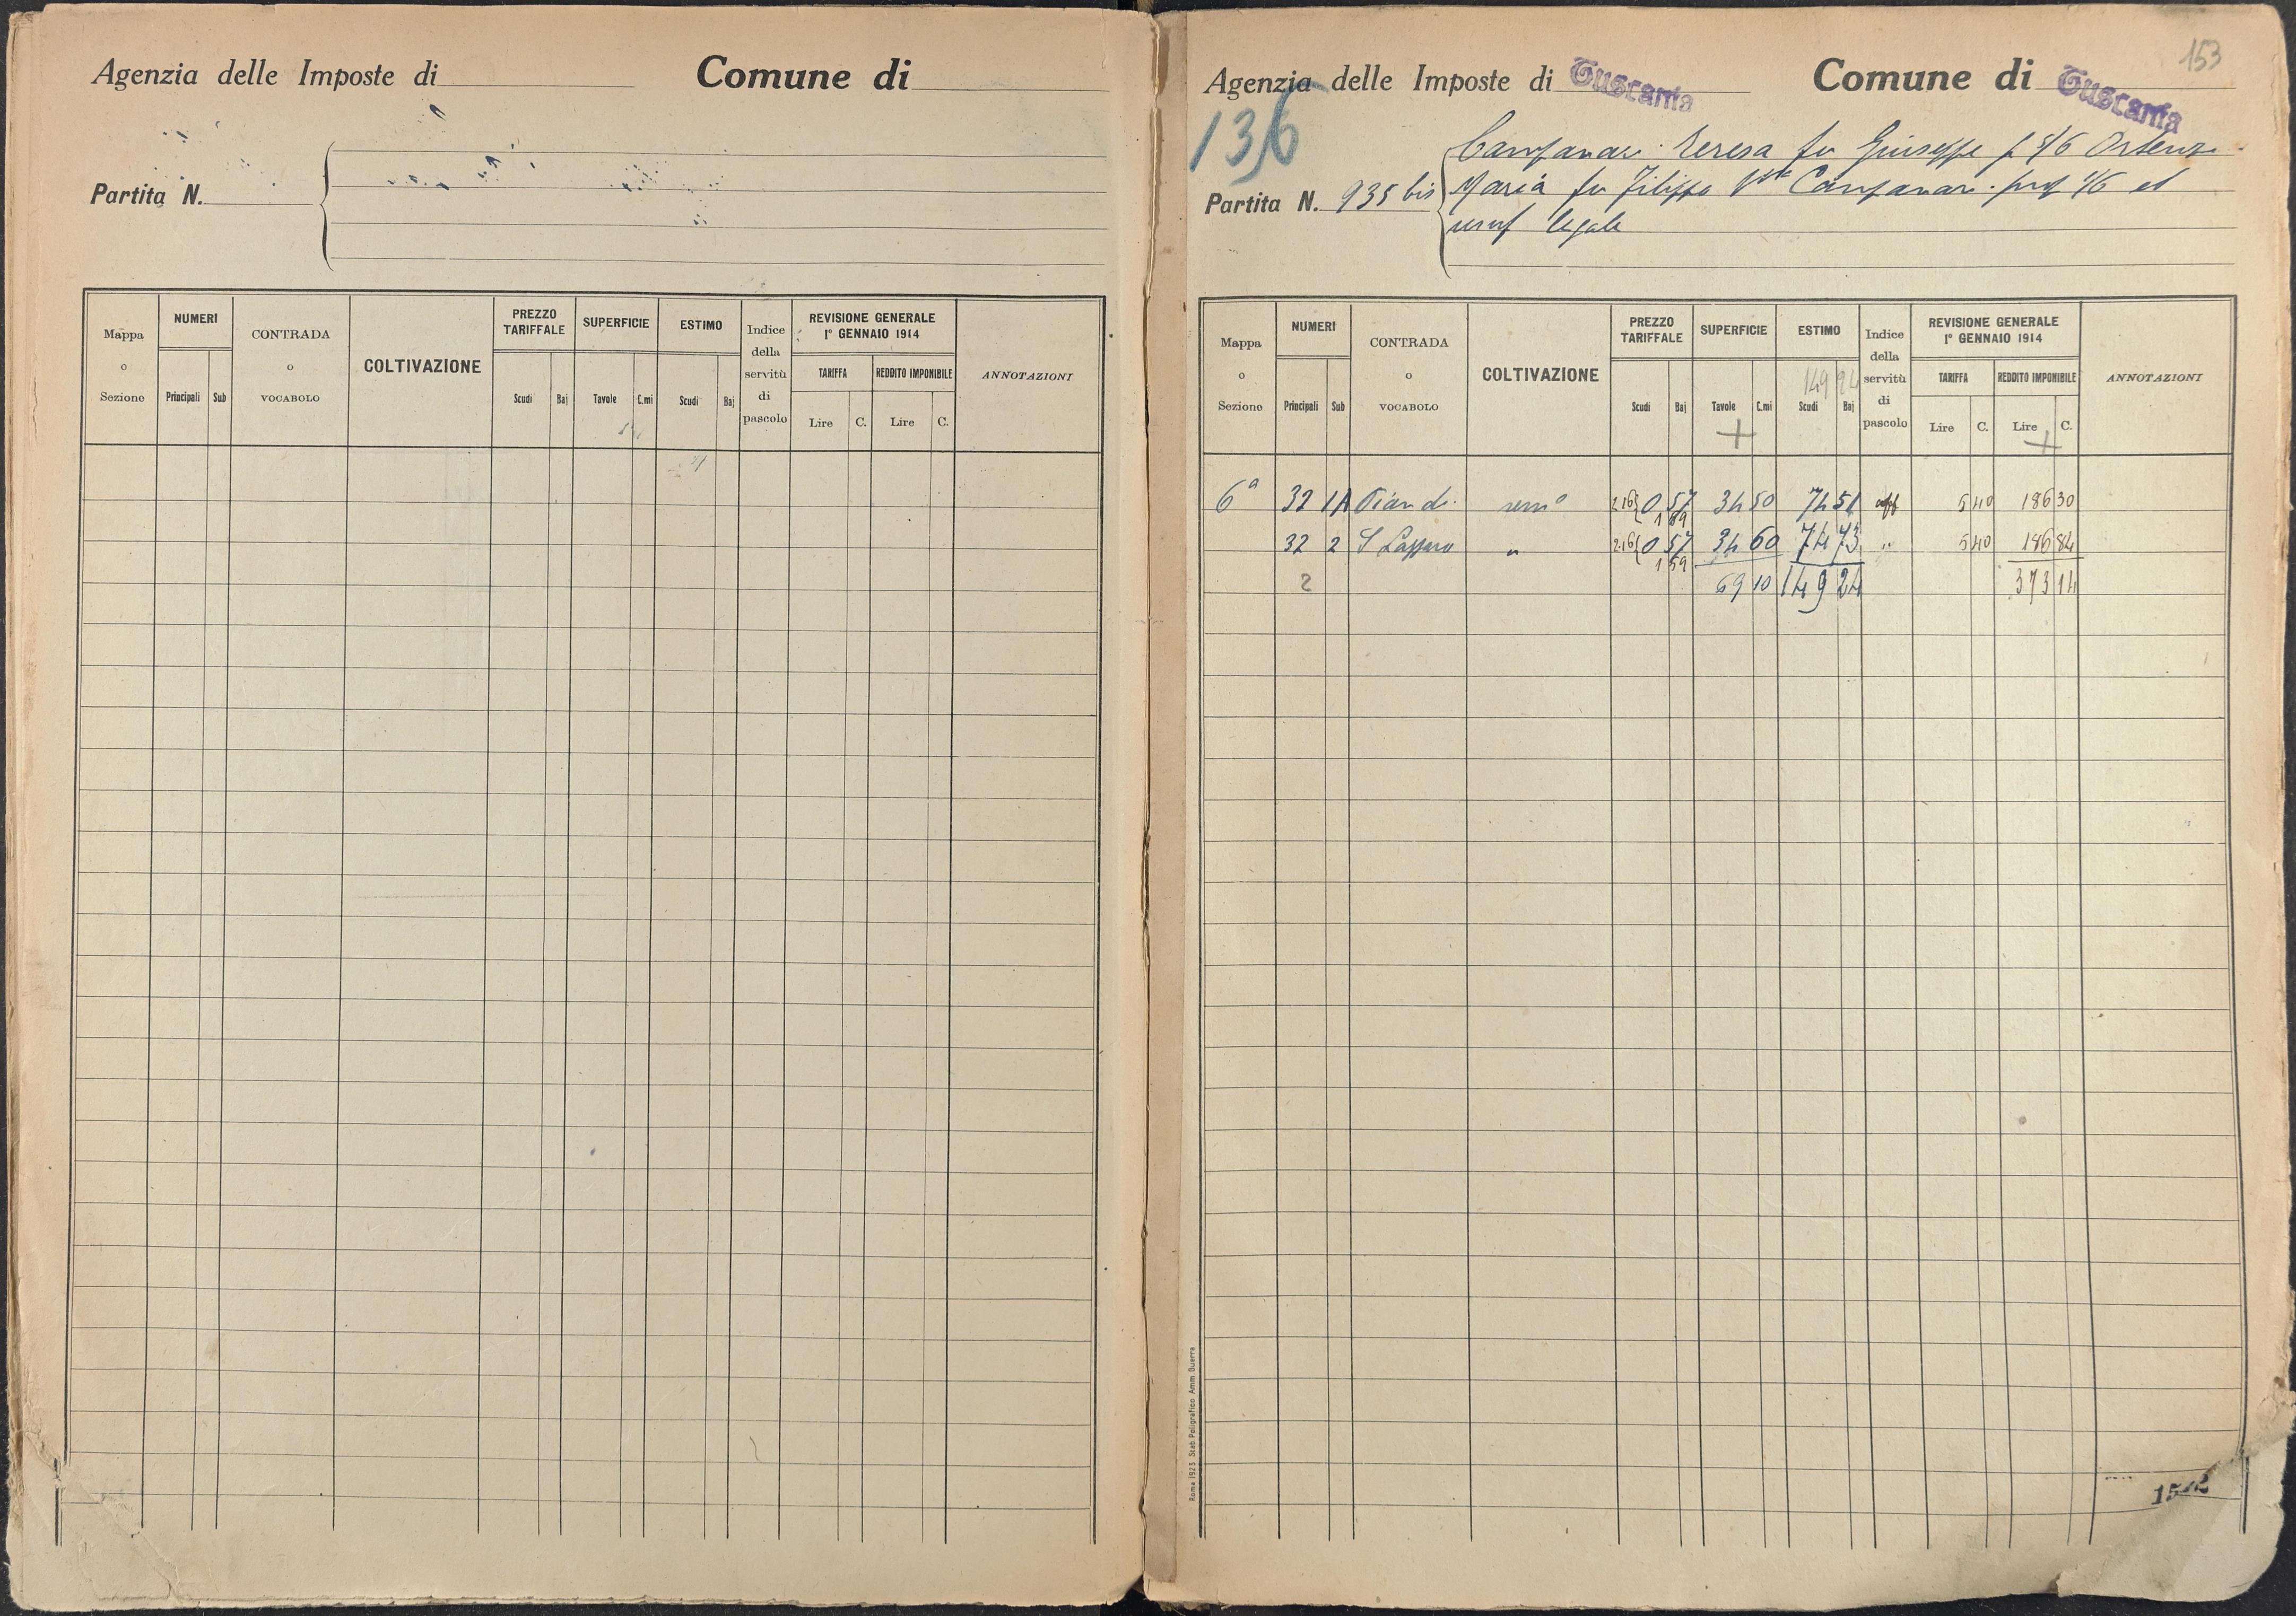 Agenzia delle Imposte di
Comune di
Partita N.
Mappa o Sezione
NUMERI
Principali Sub
CONTRADA o VOCABOLO
COLTIVAZIONE
PREZZO TARIFFALE
Scudi Baj
SUPERFICIE
Tavole C.mi
ESTIMO
Scudi Baj
Indice della servitù di pascolo
REVISIONE GENERALE
1º GENNAIO 1914
TARIFFA
Lire C.
REDDITO IMPONIBILE
Lire C.
ANNOTAZIONI
153
Agenzia delle Imposte di Tuscania
Comune di Tuscania
136
Campanari Teresa fu Giuseppe p 5/6
Partita N. 935 bis
Maria fu Filippo Campanari 1/6 ed
usuf legale
Mappa o Sezione
NUMERI
Principali Sub
CONTRADA o VOCABOLO
COLTIVAZIONE
PREZZO TARIFFALE
Scudi Baj
SUPERFICIE
Tavole C.mi
+
ESTIMO
149 24
Scudi Baj
Indice della servitù di pascolo
REVISIONE GENERALE
1º GENNAIO 1914
TARIFFA
Lire C.
REDDITO IMPONIBILE
Lire C.
+
ANNOTAZIONI
6a 32 1A Pian di semo 2.16 0 57 34 50 74 51 aff 5 40 186 30
1 59
32 2 S Lazzaro " 2.16 0 57 34 60 74 73 " 5 40 186 84
1 59
2 69 10 149 24 373 14
Roma 1923 Stab. Poligrafico Amm. Guerra